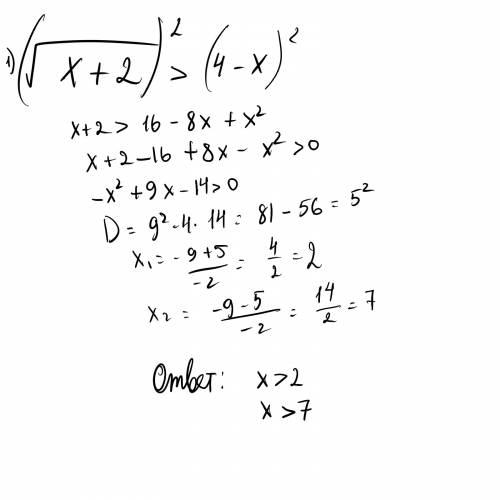 1) (√x+2)² > (4-x)²
x+2 > 16 - 8x + x²
x+2-16 +8x - x² >0
-x² +9x -14>0
D = 9² -4·14 = 81 - 56 = 5²
x₁ = -9+5/-2 = 4/2 = 2
x₂ = -9-5/-2 = 14/2 = 7
Ответ: x>2
x>7